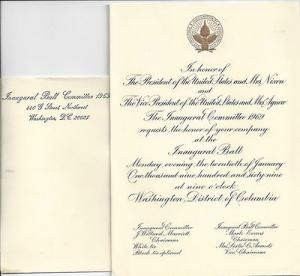 Inaugural Ball Committee 1969
440 G Street Northwest
Washington, D.C. 20002
In honor of
The President of the United States and Mrs. Nixon
and
The Vice President of the United States and Mrs. Agnew
The Inaugural Committee 1969
requests the honor of your company
at the
Inaugural Ball
Monday evening, the twentieth of January
One thousand nine hundred and sixty nine
at nine o'clock
Washington, District of Columbia
Inaugural Committee
J. Willard Marriott
Chairman
White tie
Black tie optional
Inaugural Ball Committee
Mark Evans
Chairman
Mrs.
Vice Chairman